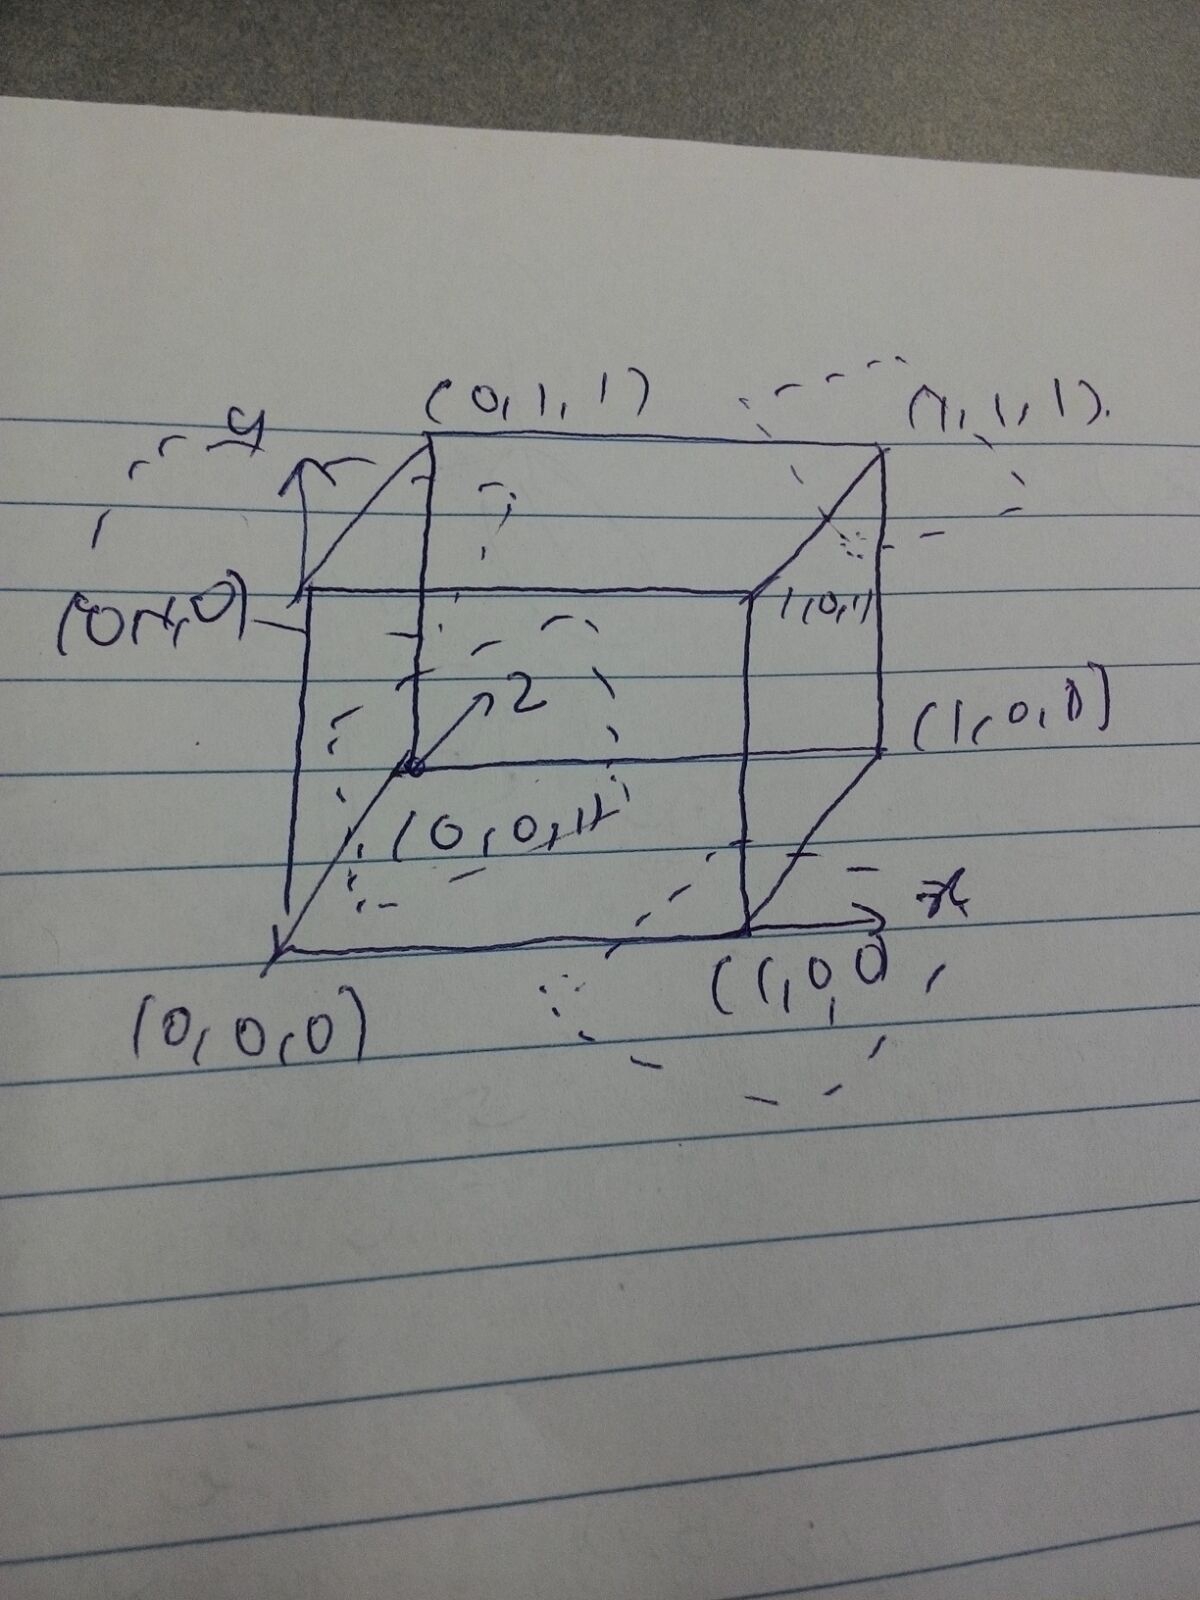 (0,1,1) (1,1,1).
y
(0,1,0) 1,0,1)
z (1,0,1)
(0,0,1)
x
(1,0,0)
(0,0,0)